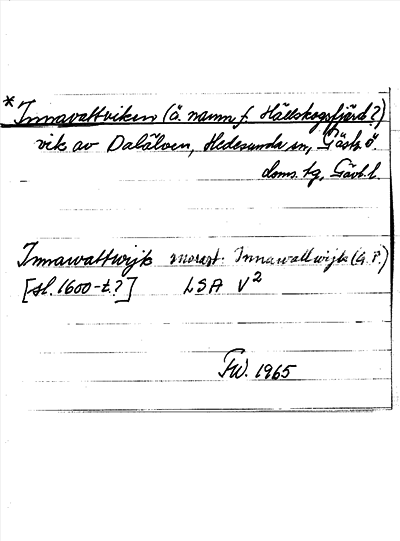 *Innavattviken (ä. namn f. Hällskogsfjärd?)
vik av Dalälven, Hedesunda sn, Gästr. ö.
doms. tg, Gävl. l.
Innawattwijk morast. Innawattwijk (G. P.)
[sl. 1600-t.?] LSA V²
FW. 1965